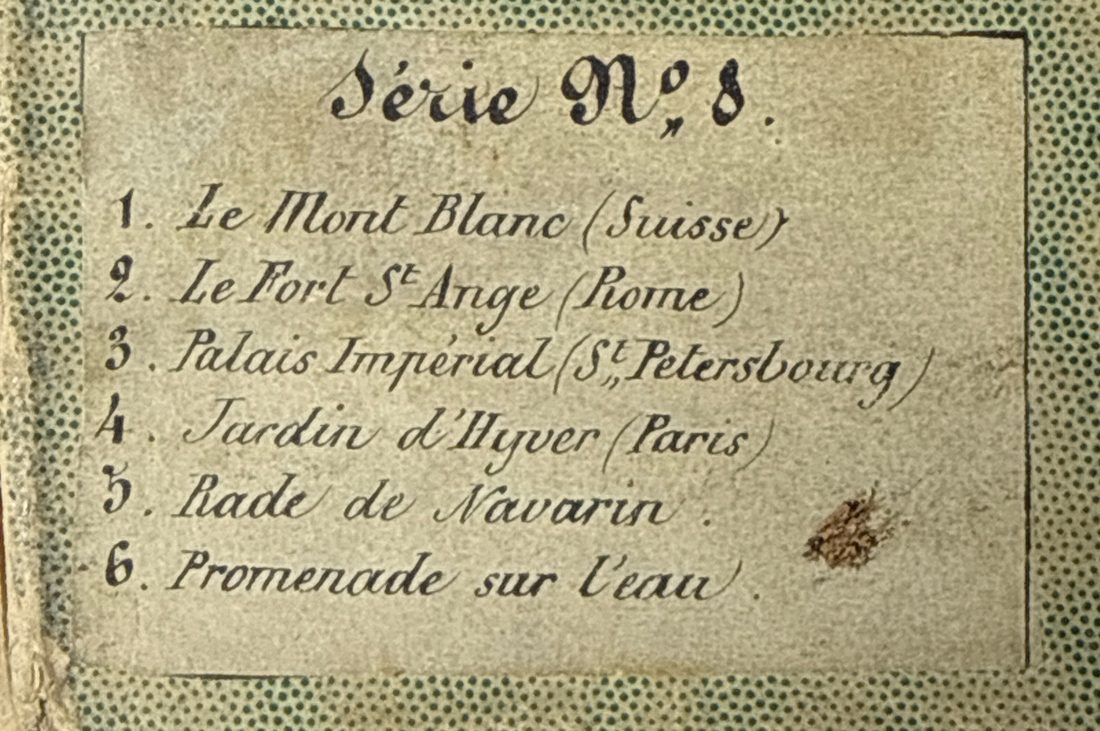 Série Nº 8.
1. Le Mont Blanc (Suisse)
2. Le Fort St Ange (Rome)
3. Palais Impérial (St Petersbourg)
4. Jardin d'Hyver (Paris)
5. Rade de Navarin.
6. Promenade sur l'eau.